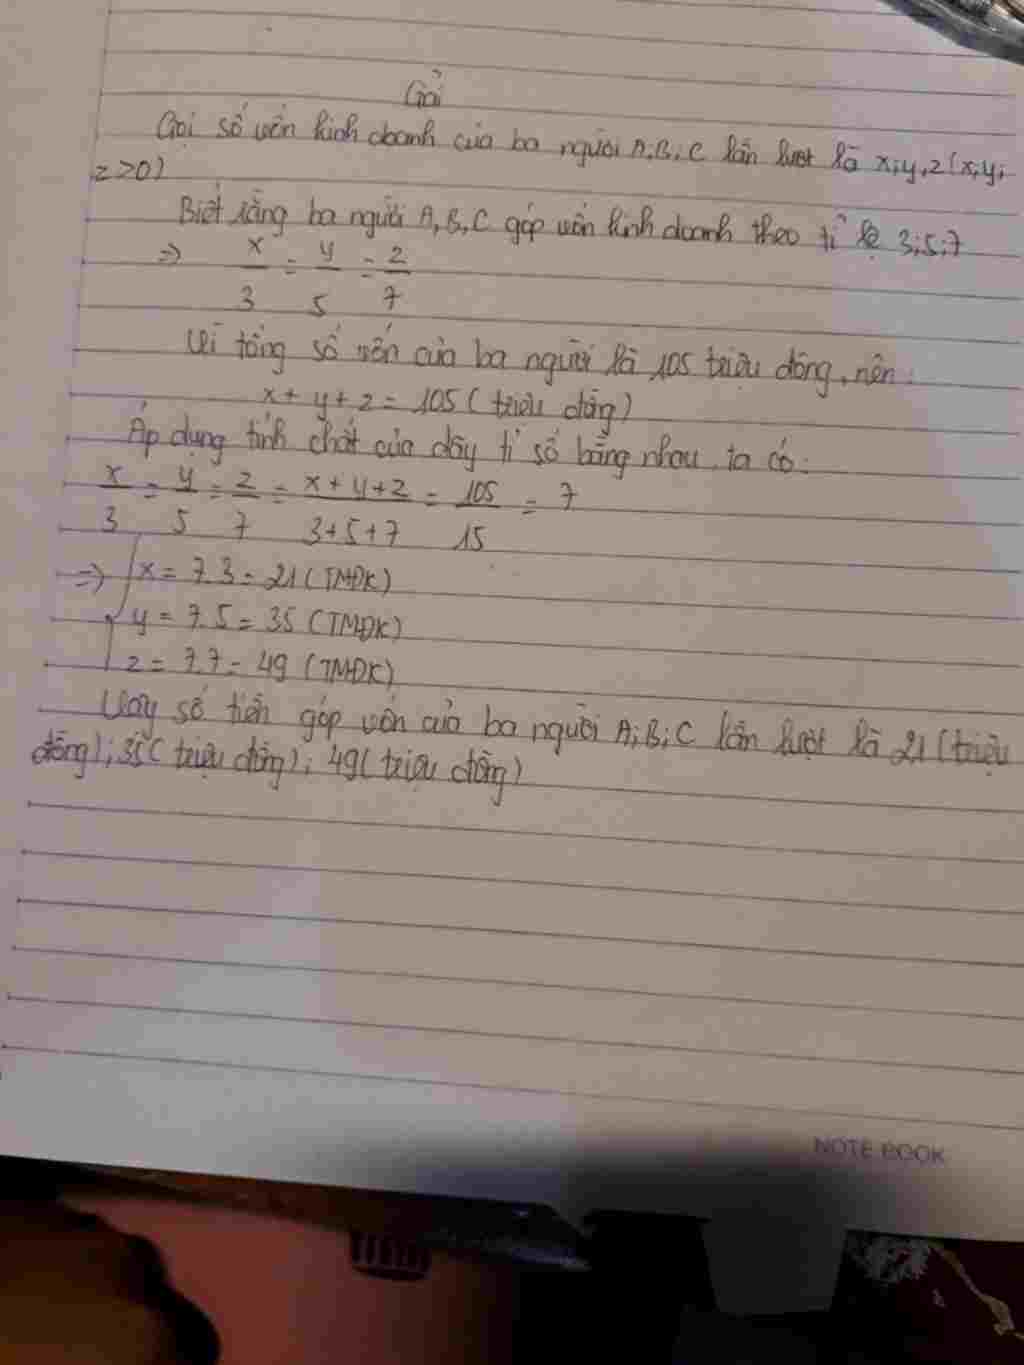 Giải
Gọi số vốn kinh doanh của ba người A,B,C lần lượt là x;y,z (x;y;
z>0)
Biết rằng ba người A,B,C góp vốn kinh doanh theo tỉ lệ 3;5;7
=> x/3 = y/5 = z/7
Vì tổng số vốn của ba người là 105 triệu đồng, nên:
x+y+z = 105 (triệu đồng)
Áp dụng tính chất của dãy tỉ số bằng nhau, ta có:
x/3 = y/5 = z/7 = x+y+z/3+5+7 = 105/15 = 7
=> x = 7.3 = 21 (TMĐK)
y = 7.5 = 35 (TMĐK)
z = 7.7 = 49 (TMĐK)
Vậy số tiền góp vốn của ba người A;B;C lần lượt là 21 (triệu
đồng); 35 (triệu đồng); 49 (triệu đồng)
NOTE BOOK